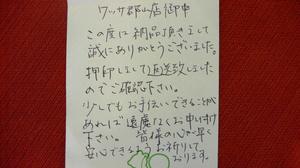 ワッサ郡山店御中
この度は納品頂きまして
誠にありがとうございました。
押印しまして返送致しました
のでご確認下さい。
少しでもお手伝いできることが
あれば遠慮なくお申し付け
下さい。皆様の心が早く
安心できるようお祈りして
おります。